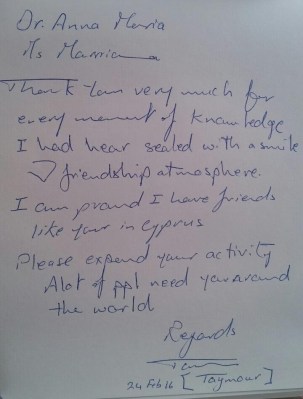 Dr. Anna Maria
Ms Marria
Thank You very much for
every moment of knowledge
I had hear sealed with a smile
& friendship atmosphere.
I am proud I have friends
like your in Cyprus
Please expend your activity
Alot of ppl need you around
the world
Regards
24 Feb 16 [Taymour]